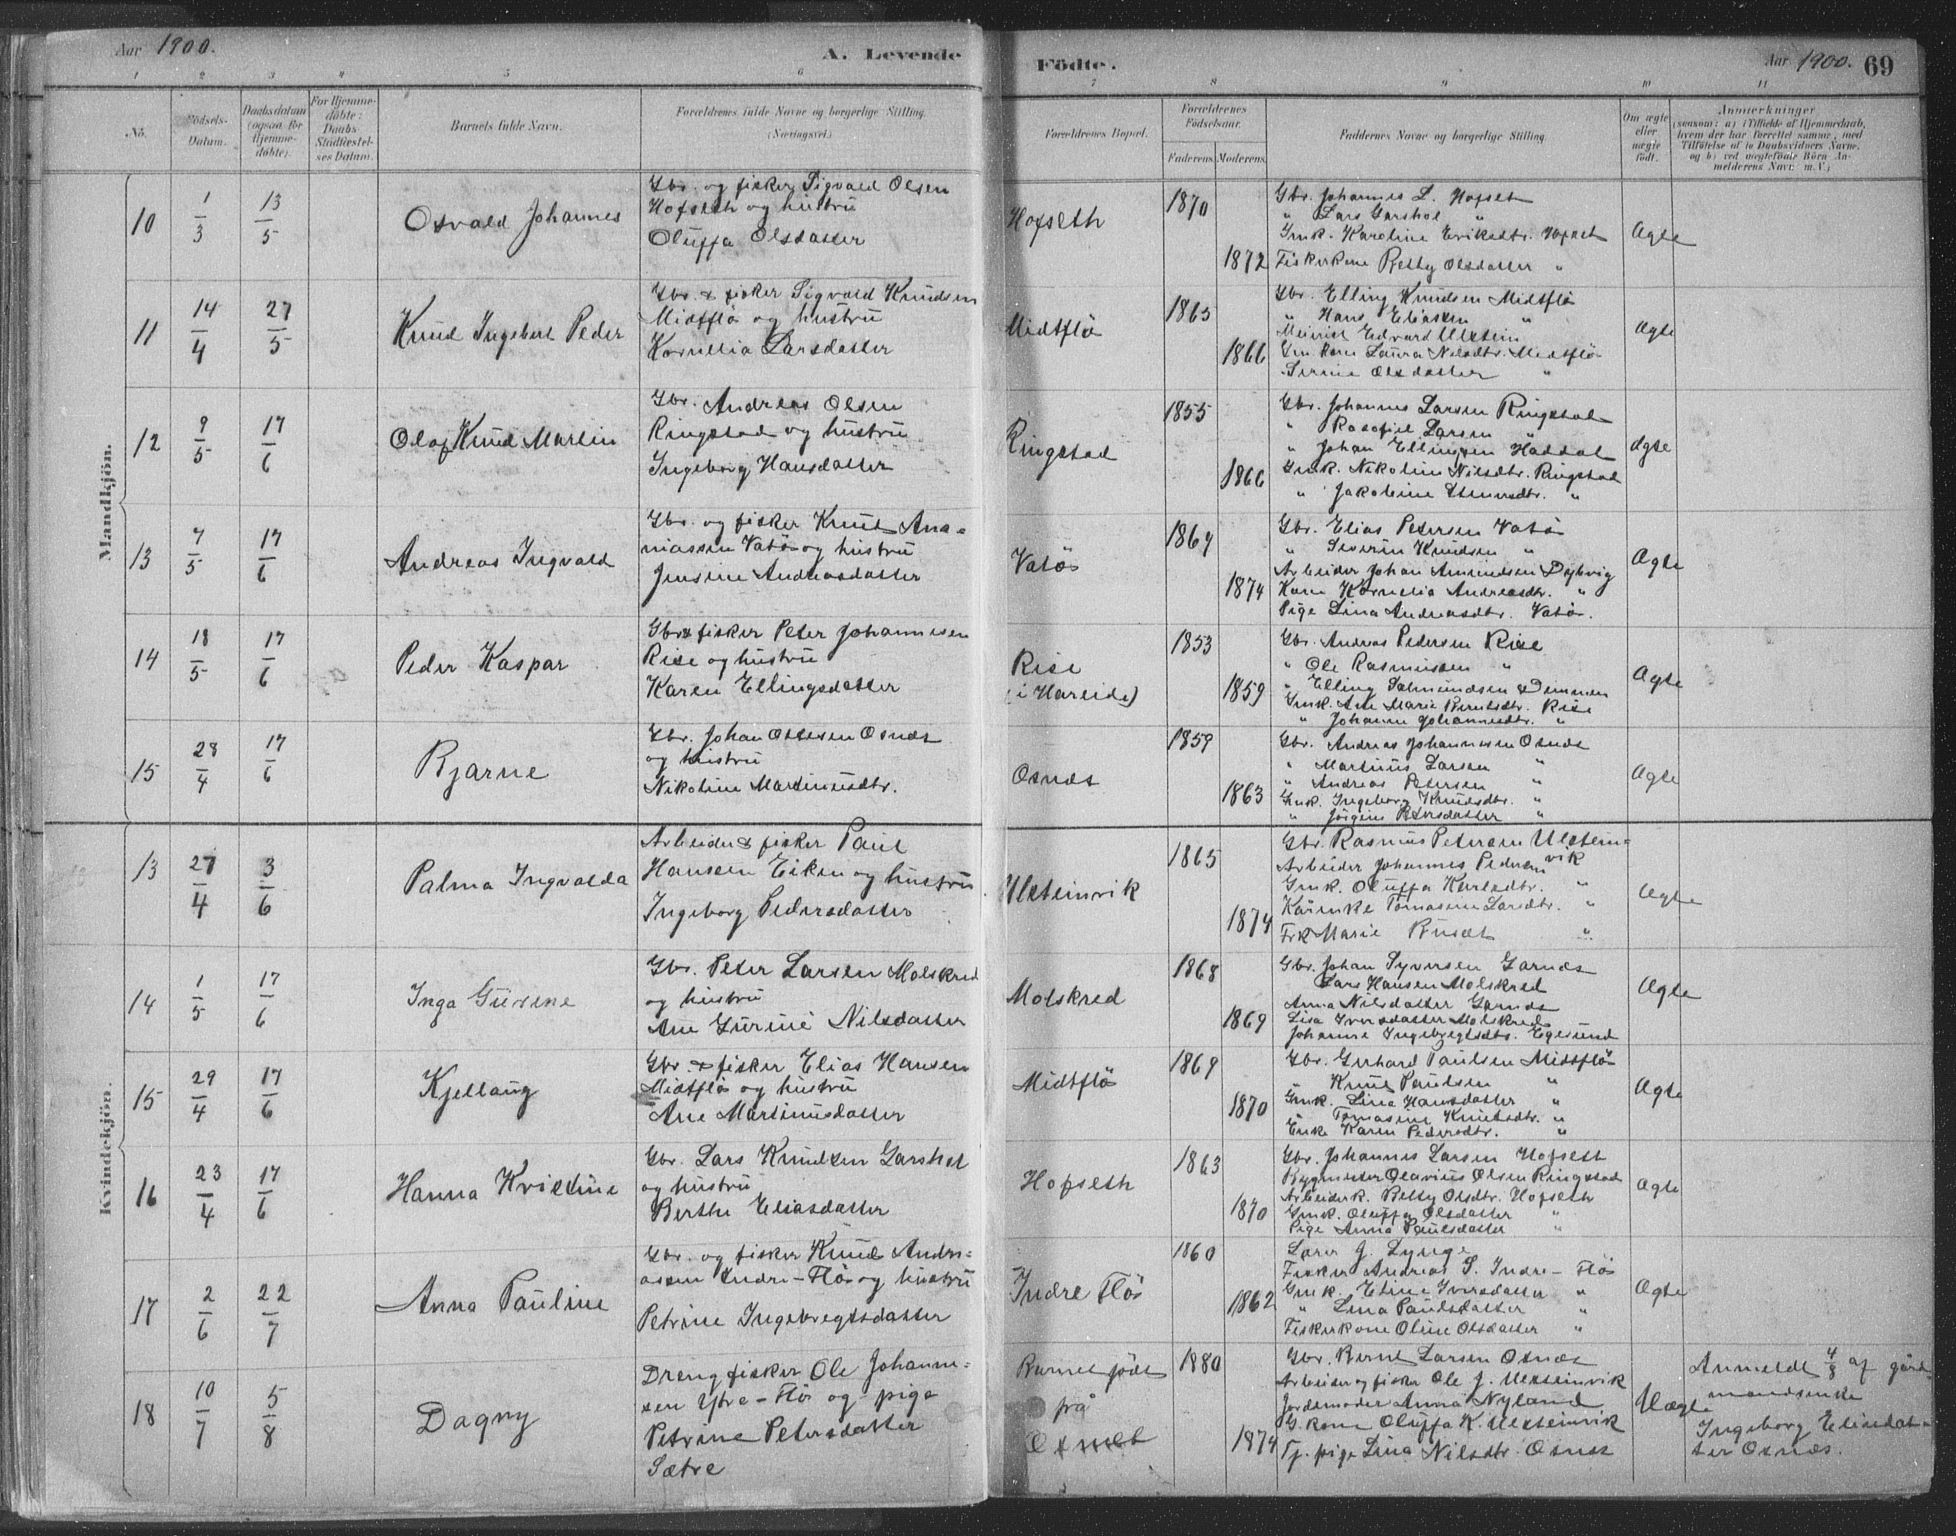 Aar 1900.
A. Levende
Födte.
Aar 1900. 69
1 2 3 4 5 6 7 8 9 10 11
No.
Födsels-
Datum.
Daabsdatum
(ogsaa for
Hjemme-
döbte).
For Hjemme-
döbte:
Daabs-
Stadfæstel-
ses Datum.
Barnets fulde Navn.
Forældrenes fulde Navne og borgerlige Stilling.
(Næringsvei.)
Forældrenes Bopæl.
Forældrenes
Födselsaar.
Faderens. Moderens.
Faddernes Navne og borgerlige Stilling.
Om ægte
eller
uægte
født.
Anmærkninger
(saasom: a) i Tilfælde af Hjemmedaab,
hvem der har forrettet samme, med
Tilföielse af to Daabsvidners Navne.
og b) ved uægtefödte Börn An-
melderens Navn m. V.)
Mandkjön.
10
1/3
13/5
Osvald Johannes
Gbr. og fisker Sigvald Olsen
Hofseth og hustru
Oluffa Olsdatter
Hofseth
1870
1872
Gbr. Johannes L. Hofset
" Lars Garshol "
Gmk. Karoline Eriksdtr. Hofset
Fiskerkone Betty Olsdatter "
Ægte
11
14/4
27/5
Knud Ingebert Peder
Gbr. & fisker Sigvald Knudsen
Midtflø og hustru
Kornelia Larsdatter
Midtflø
1865
1866
Gbr. Elling Knudsen Midtflø
" Hans Eliassen "
Edvard Ulstein
Gm. kone Laura Nilsdtr. Midtflø
Serine Olsdatter "
Ægte
12
9/5
17/6
Olaf Knud Martin
Gbr. Andreas Olsen
Ringstad og hustru
Ingeborg Hansdatter
Ringstad
1855
1866
Gbr. Johannes Larsen Ringstad
" Larsen "
" Johan Ellingsen Haddal
Gmk. Nikoline Nilsdtr. Ringstad
" Jakobine "
Ægte
13
7/5
17/6
Andreas Ingvald
Gbr. og fisker Knut Ana-
niassen Vatø og hustru
Jensine Andreasdatter
Vatø
1869
1874
Gbr. Elias Petersen Vatø
" Severin Knudsen "
Arbeider Johan Amundsen Dybvig
Kone Kornelia Andreasdtr. "
Pige Lina Andreasdtr. Vatø.
Ægte
14
18/5
17/6
Peder Kaspar
Gbr & fisker Peter Johannesen
Rise og hustru
Karen Ellingsdatter
Rise
(i Hareide)
1853
1859
Gbr. Andreas Pedersen Rise
" Ole Rasmussen "
" Elling Salmundsen Dimmen
Gmk. Ane Marie Berntsdtr. Rise
" Johanne Johannesdtr. "
Ægte
15
28/4
17/6
Bjarne
Gbr. Johan Ottesen Osnes
og hustru
Nikoline Martinusdtr.
Osnes
1859
1863
Gbr. Andreas Johannesen Osnes
" Martinus Larsen "
" Andreas Petersen "
Gmk. Ingeborg Knudsdtr. "
" Jörgine Petersdatter "
Ægte
Kvindekjön.
13
27/4
3/6
Palma Ingvalda
Arbeider & fisker Paul
Hansen Eiken og hustru
Ingeborg Pedersdatter
Ulsteinvik
1865
1874
Gbr. Rasmus Petersen Ulstein-
vik
Arbeider Johannes Pedersen
Gmk. Oluffa Karlsdtr. "
Tomasine Larsdtr. "
Frk Marie Busæt "
Ægte
14
1/5
17/6
Inga Gurine
Gbr. Peter Larsen Molskred
og hustru
Ane Gurine Nilsdatter
Molskred
1868
1869
Gbr. Johan Syversen Garnes
Lars Hansen Molskred
Anna Nilsdatter Garnes
Lisa Iversdatter Molskred
Johanne Ingebregtsdtr. Egesund
Ægte
15
29/4
17/6
Kjellaug
Gbr. & fisker Elias Hansen
Midtflø og hustru
Ane Martinusdatter
Midtflø
1869
1870
Gbr. Gerhard Paulsen Midtflø
" Knut Paulsen "
Gmk. Lina Hansdatter "
" Tomasine Knutsdtr. "
Enke Karen Pedersdtr. "
Ægte
16
23/4
17/6
Hanna Kristine
Gbr. Lars Knudsen Garshol
og hustru
Berthe Eliasdatter
Hofseth
1863
1870
Gbr. Johannes Larsen Hofseth
Bygmester Olavius Olsen Ringstad
Arbeiderk. Betty Olsdtr. Hofseth
Gmk. Oluffa Olsdatter "
Pige Anna Paulsdatter "
Ægte
17
2/6
22/7
Anna Pauline
Gbr. og fisker Knud Andre-
assen Indre-Flø og hustru
Petrine Ingebregtsdatter
Indre Flø
1860
1862
Lærer J. Lynge
Fisker Andreas S. Indre-Flø
Gmk. Eline Iversdatter "
" Lina Paulsdatter "
Fiskerkone Oline Olsdatter "
Ægte
18
10/7
5/8
Dagny
Dreng fisker Ole Johanne-
sen Ytre-Flø og pige
Petrine Petersdatter
Sætre
Barnet födt
på
Osnes
1880
1874
Gbr. Bernt Larsen Osnes
Arbeider og fisker Ole J. Ulsteinvik
Jordemoder Anna Nyland
G. kone Oluffa K. Ulsteinvik
Tj. pige Lina Nilsdtr. Osnes
Uægte
Anmeldt 4/8 af gård
mandsenke
Ingeborg Elisedat-
ter Osnes.